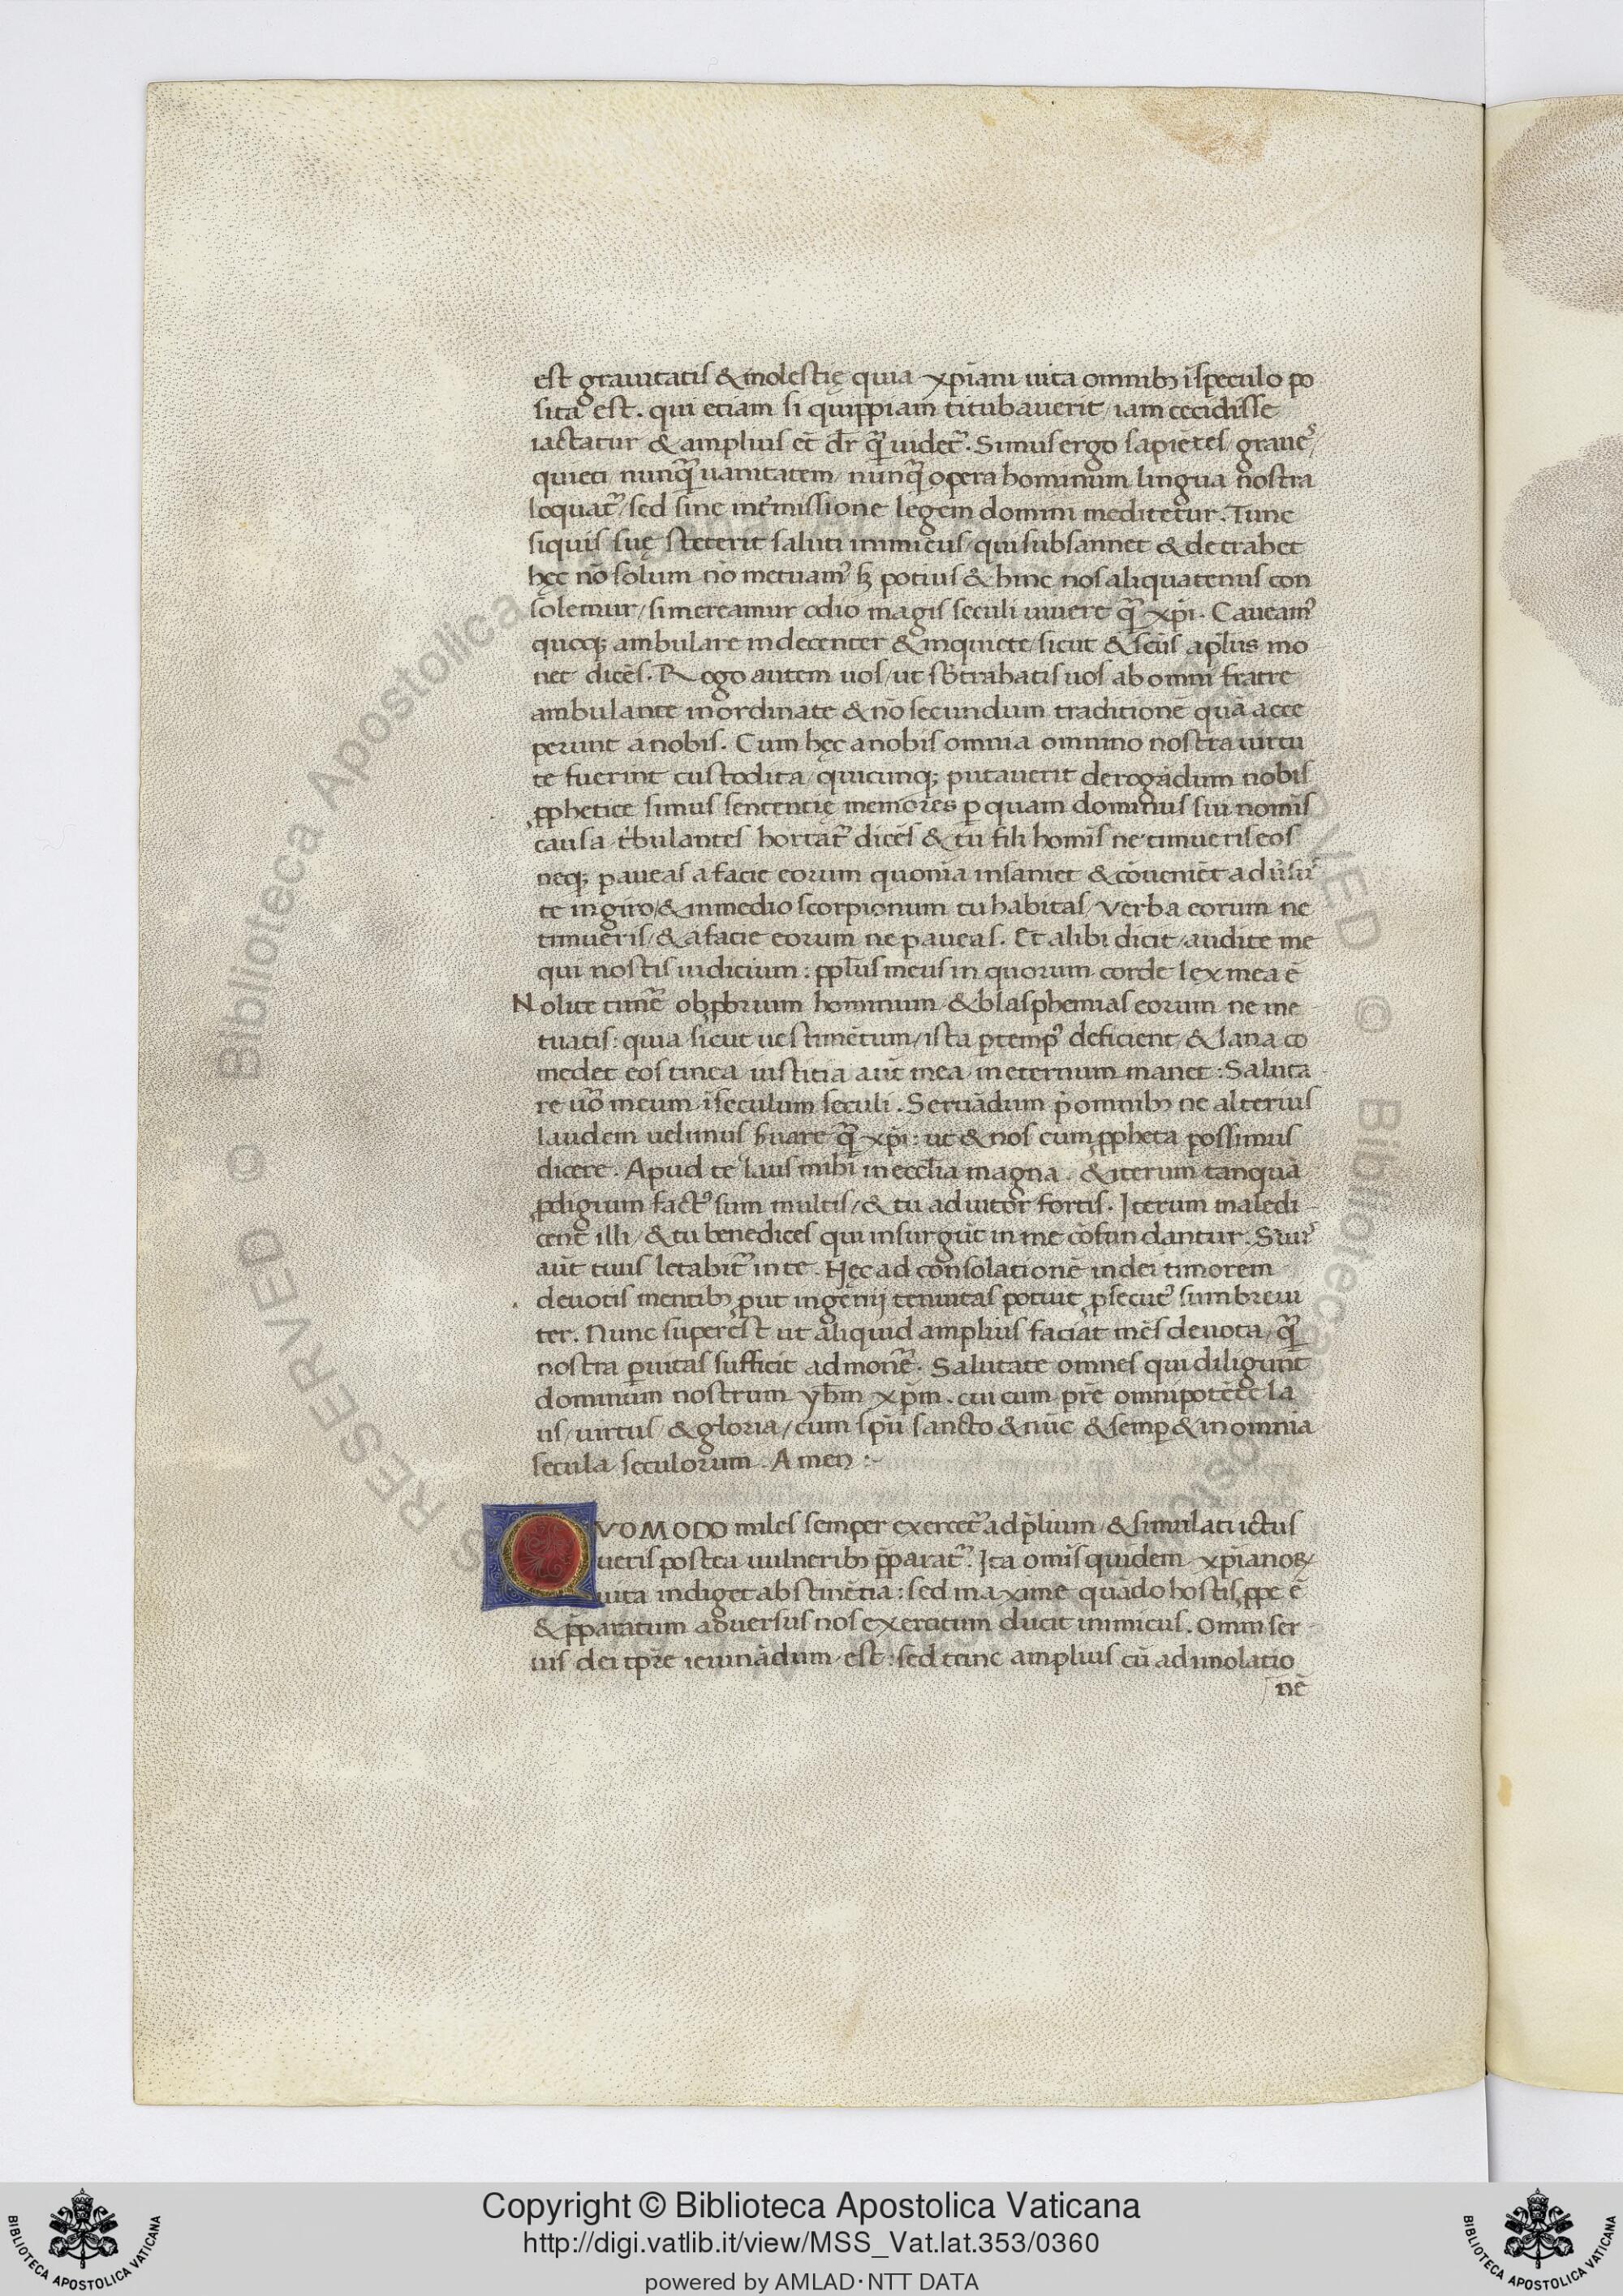 est grauitatis & molestię quia xp̄iani uita omnibꝫ ī speculo po
sita est. qui etiam si quippiam titubauerit / iam cecidisse
iactatur & amplius et̄ dr̄ q̄ uidet᷑. Simus ergo sapiētes / graueꝰ /
quieti / nunq̄ uanitatem / nunq̄ opera hominum lingua nostra
loquat᷑ / sed sine int̄missione legem domini meditetur. Tunc
siquis suę steterit saluti inimicus / qui subsannet & detrahet
hęc nō solum nō metuamꝰ sꝫ potius & hinc nos aliquatenus con
solemur / si mereamur odio magis seculi uiuere q̄ xp̄i. Caueamꝰ
quoqꝫ ambulare indecenter & inquiete / sicut & scūs aplūs mo
net dicēs. Rogo autem uos / ut sb̄trahatis uos ab omni fratre
ambulante inordinate & nō secundum traditionē quā acce
perunt a nobis. Cum hęc a nobis omnia omnino nostra uirtu
te fuerint custodita / quicunqꝫ putauerit derogādum nobis
ꝓphetice simus sententię memores ꝑ quam dominus sui nomīs
causa t̄bulantes hortāt᷑ dicēs & tu fili homīs ne timueris eos
neqꝫ paueas a facie eorum quoniā insaniet & cōueniēt adūsū
te in giro / & in medio scorpionum tu habitas / verba eorum ne
timueris / & a facie eorum ne paueas. Et alibi dicit / audite me
qui nostis iudicium : pplūs meus in quorum corde lex mea ē
Nolite timē᷑ obꝓbrium hominum & blasphemias eorum ne me
tuatis : quia sicut uestimētum / ista ꝑ tempꝰ deficient / & lana co
medet eos tinea iustitia aūt mea in eternum manet : Saluta
re uō meum ī seculum seculi. Seruādum p̄ omnibꝫ ne alterius
laudem uelimus s̄uare q̄ xp̄i : ut & nos cum ꝓpheta possimus
dicere. Apud te laus mihi in eccl̄ia magna. & iterum tanquā
ꝓdigium factꝰ sum multis / & tu adiutor fortis. Iterum maledi
cent᷑ illi / & tu benedices qui insurgūt in me cōfundantur. Sūuꝰ
aūt tuus letabit᷑ in te. Hęc ad consolationē in dei timorem
deuotis mentibꝫ ꝓut ingenij tenuitas potuit ꝓsecutꝰ sum breui
ter. Nunc superest ut aliquid amplius faciat mēs deuota / q̄
nostra ꝑuitas sufficit admonē᷑. Salutate omnes qui diligunt
dominum nostrum yhm̄ xp̄m. cui cum pr̄e omnipotēte la
us / uirtus / & gloria / cum spū sancto & nūc & semꝑ & in omnia
secula seculorum. Amen :~
QVOMODO miles semper exercet᷑ ad p̄lium / & simulati ictus
ueris postea uulneribꝫ p̄parat᷑. Ita omīs quidem xp̄ianoꝝ
uita indiget abstinētia : sed maxime quādo hostis ꝓpe ē
& p̄paratum aduersus nos exercitum ducit inimicus. Omni ser
uis dei tp̄r̄e ieiunādum est : sed tunc amplius cū ad imolatio
nē
Copyright © Biblioteca Apostolica Vaticana
http://digi.vatlib.it/view/MSS_Vat.lat.353/0360
powered by AMLAD·NTT DATA
BIBLIOTECA APOSTOLICA VATICANA
BIBLIOTECA APOSTOLICA VATICANA